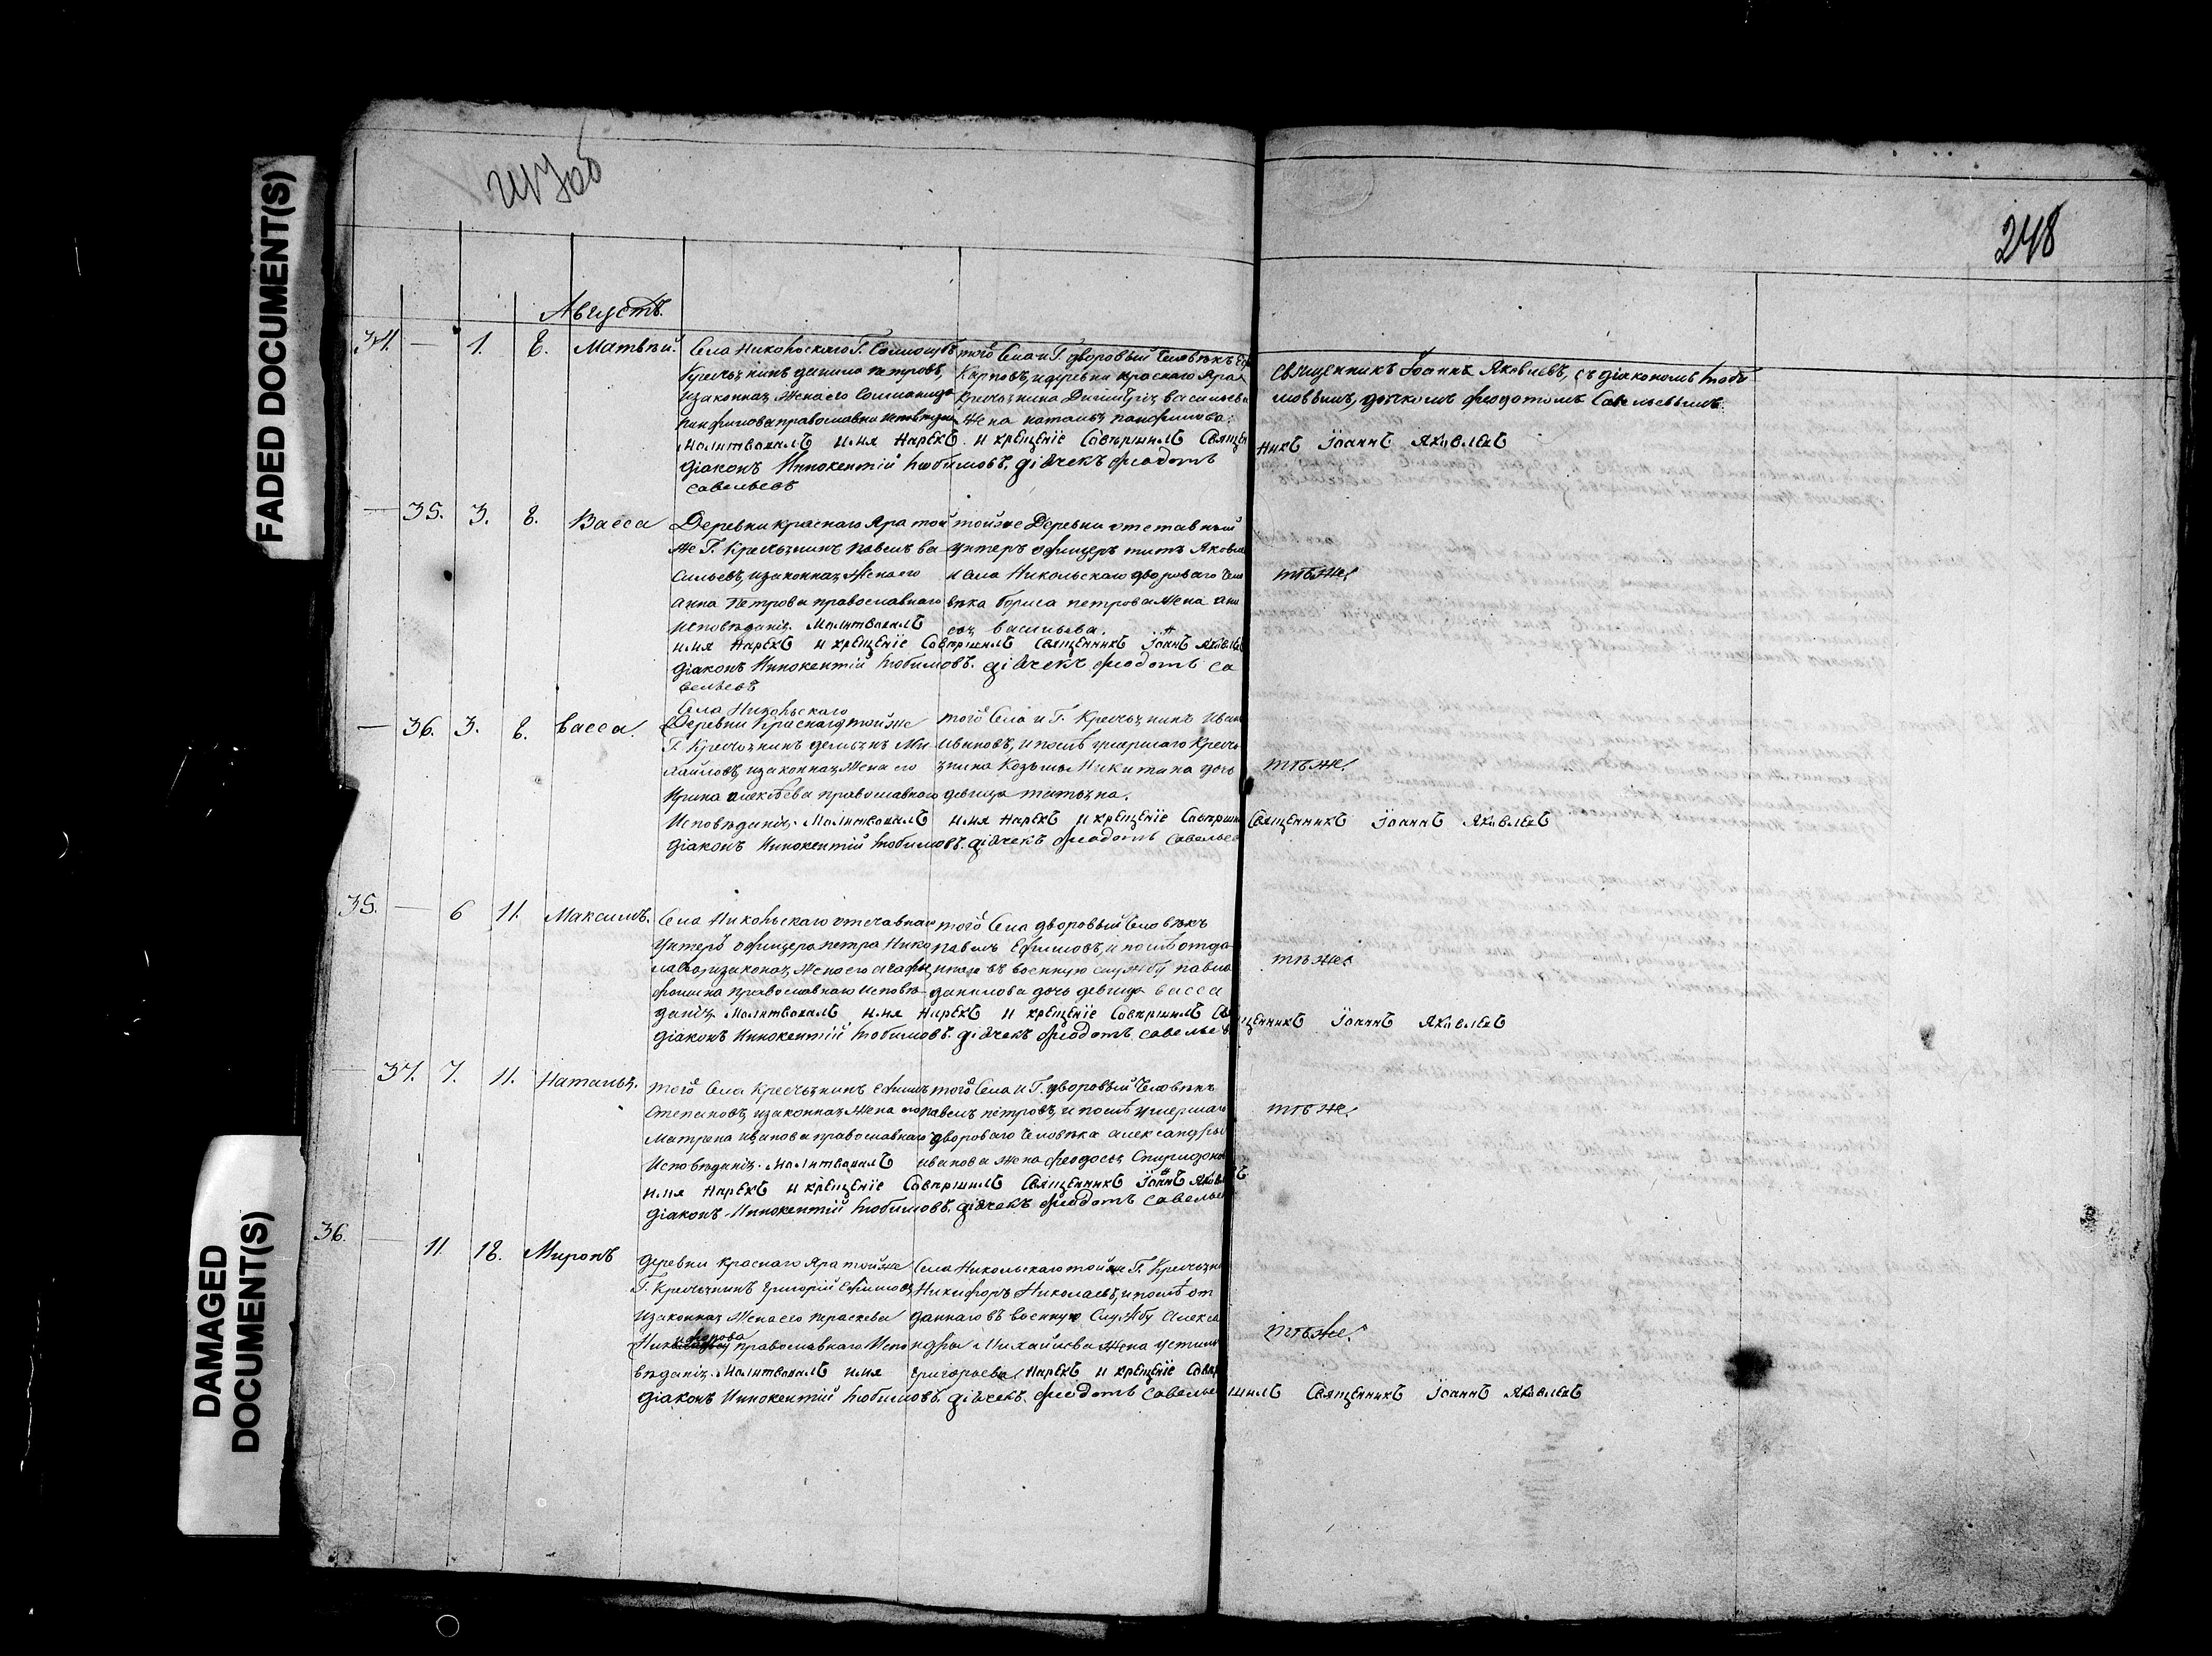 FADED DOCUMENT(S)
DAMAGED DOCUMENT(S)
248
Августъ.
34. — 1. 8. Матвѣй.
Села Никольскаго Г. Соллогубъ
Крестьянинъ данило петровъ,
изаконная Жена его Соломонида
панфилова православна исповедан
Молитвовалъ имя Нарекъ и крещеніе Совершилъ Священникъ Іоаннъ Яковлевъ
діаконъ Иннокентій Любимовъ. дiячекъ феодотъ
савельевъ
того Села и Г. дворовый Человѣкъ
Карповъ, идеревни краснаго Яра
крестьянина Димитрія васильева
Жена наталья панфилова.
Священникъ Іоаннъ Яковлевъ, съ діакономъ Люби
мовымъ, дьячкомъ феодотомъ Савельевымъ.
— 35. 3. 8. Васса
Деревни краснаго Яра той
же Г. Крестьянинъ павелъ ва
сильевъ, изаконная Жена его
анна Петрова православнаго
исповѣданія. Молитвовалъ
имя Нарекъ и крещеніе Совершилъ Священникъ Іоаннъ Яковлевъ
діаконъ Иннокентій Любимовъ. дiячекъ феодотъ са
вельевъ
тойже Деревни отставный
унтеръ офицеръ титъ Яковле
и Села Никольскаго двороваго Чело
вѣка бориса петрова Жена ани
сья васильева.
тѣже.
— 36. 3. 8. васса.
Села Никольскаго
Деревни Краснаго тойже
Г. Крестьянинъ демьянъ Ми
хайловъ, изаконная Жена его
Ирина алексѣева православнаго
Исповѣданія. Молитвовалъ имя Нарекъ и крещеніе Соверши Священникъ Іоаннъ Яковлевъ
діаконъ Иннокентій Любимовъ. дiячекъ феодотъ Савельев
того Села и Г. Крестьянинъ Иван
ивановъ, ипослѣ умершаго Кресть
янина Козьмы Никитина дочь
девица татьяна.
тѣже.
35. — 6 11. Максимъ.
Села Никольскаго отставнаго
Унтеръ офицера петра Нико
лаева, изаконая Жена его агафья
фомина православнаго исповѣ
данія Молитвовалъ имя Нарекъ и крещеніе Совершилъ Священникъ Іоаннъ Яковлевъ
діаконъ Иннокентій Любимовъ. дiячекъ феодотъ савельев
того Села дворовый Человѣкъ
павелъ Ефимовъ, и послѣ отда
ннаго въ военную службу павла
данилова дочь девица васса
тѣже.
— 37. 7. 11. Наталья.
того Села Крестьянинъ ефимъ
Степановъ, изаконная Жена его
Матрена иванова православнаго
Исповѣданія. Молитвовалъ
имя Нарекъ и крещеніе Совершилъ Священникъ Іоаннъ Яковлевъ
діаконъ Иннокентій Любимовъ. дiячекъ феодотъ савельев
того Села и Г. дворовый Человѣкъ
павелъ петровъ, и послѣ умершаго
двороваго Человѣка александры
иванова жена феодосья Спиридоно
тѣже.
36. — 11. 18. Миронъ
деревни краснаго Яра тойже
Г. Крестьянинъ Григорій Ефимовъ
изаконная Жена его параскева
Никифорова православнаго Испо
вѣданія. Молитвовалъ имя Нарекъ и крещеніе Совершилъ Священникъ Іоаннъ Яковлевъ
діаконъ Иннокентій Любимовъ. дiячекъ. феодотъ савельев
Села Никольскаго тойже Г. Крестьяни
Никифоръ Николаевъ, ипослѣ от
даннаго въ военную Службу алекса
ндры Михайлова Жена устинья
Григорьева
тѣже.